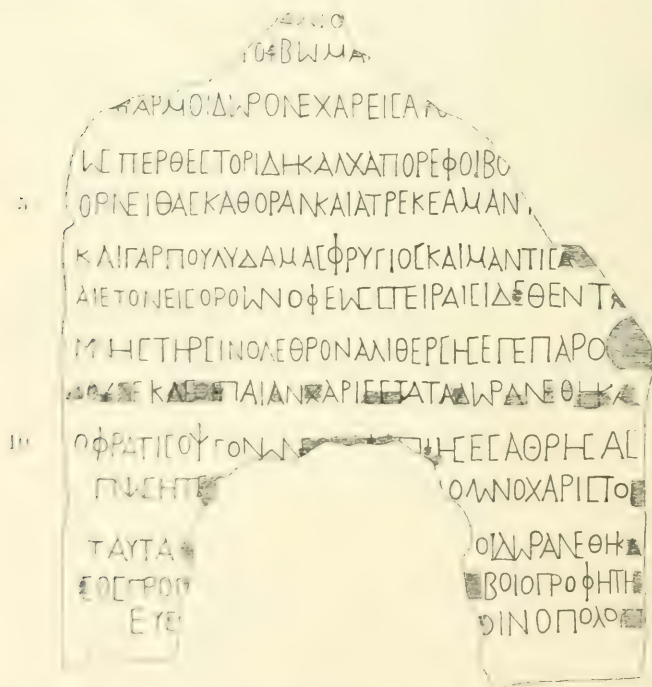 ΒΩΜΑ
ΑΡΜΟΙΔΩΡΟΝΕΧΑΡΕΙϹΑ
ΩϹΠΕΡΘΕϹΤΟΡΙΔΗΚΑΛΧΑΠΟΡΕΦΟΙΒΟ
5 ΟΡΝΕΙΘΑϹΚΑΘΟΡΑΝΚΑΙΑΤΡΕΚΕΑΜΑΝ
ΚΑΙΓΑΡΠΟΥΛΥΔΑΜΑϹΦΡΥΓΙΟϹΚΑΙΜΑΝΤΙϹΑ
ΑΙΕΤΟΝΕΙϹΟΡΟΩΝΟΦΕΩϹΠΕΙΡΑΙϹΙΔΕΘΕΝΤΑ
ΜΝΗϹΤΗΡϹΙΝΟΛΕΘΡΟΝΑΛΙΘΕΡϹΗϹΕΓΕΠΑΡΟ
ΠΑΙΑΝΧΑΡΙΕϹΤΑΤΑΔΩΡΑΝΕΘΗΚΑ
10 ΟΦΡΑΤΙϹΟΥΓΟΝΩΝ ΠΙΗϹΕϹΑΘΡΗϹΑϹ
ΟΛΩΝΟΧΑΡΙϹΤΟ
ΤΑΥΤΑ ΟΙΔΩΡΑΝΕΘΗΚΑ
ΕΟϹΠΡΟΠ ΒΟΙΟΠΡΟΦΗΤΗ
ΕΥΕ ΟΙΝΟΠΟΛΟ